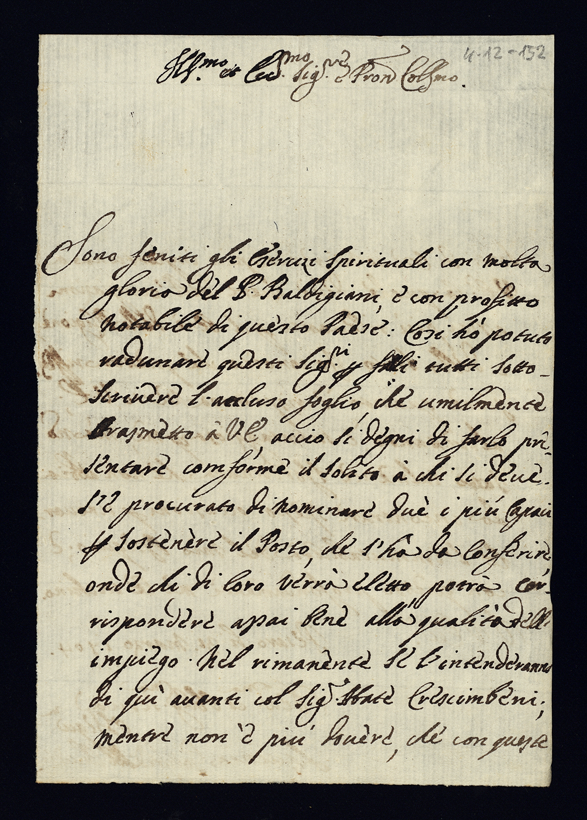 4-12-152
Ill.mo et Ecc.mo Sig.re e Pron Colmo.
Sono feniti gli Esercizi Spirituali con molta
gloria del P. Baldigiani, e con profitto
notabile di questo Paese. Cosi hò potuto
radunare questi Sig.ri p farli tutti sotto-
scrivere l'accluso foglio, che umilmente
trasmetto à V.E. accio si degni di farlo pre-
sentare conforme il solito à chi si deve.
S'è procurato di nominare due i più Capaci
p sostenere il Posto, che s'hà da Conferire
onde chi di loro verrà eletto potrà cor-
rispondere assai bene alla qualità dell'
impiego. Nel rimanente se l'intenderanno
di quì avanti col Sig.r Abate Crescimbeni;
mentre non è più dovere, che con queste